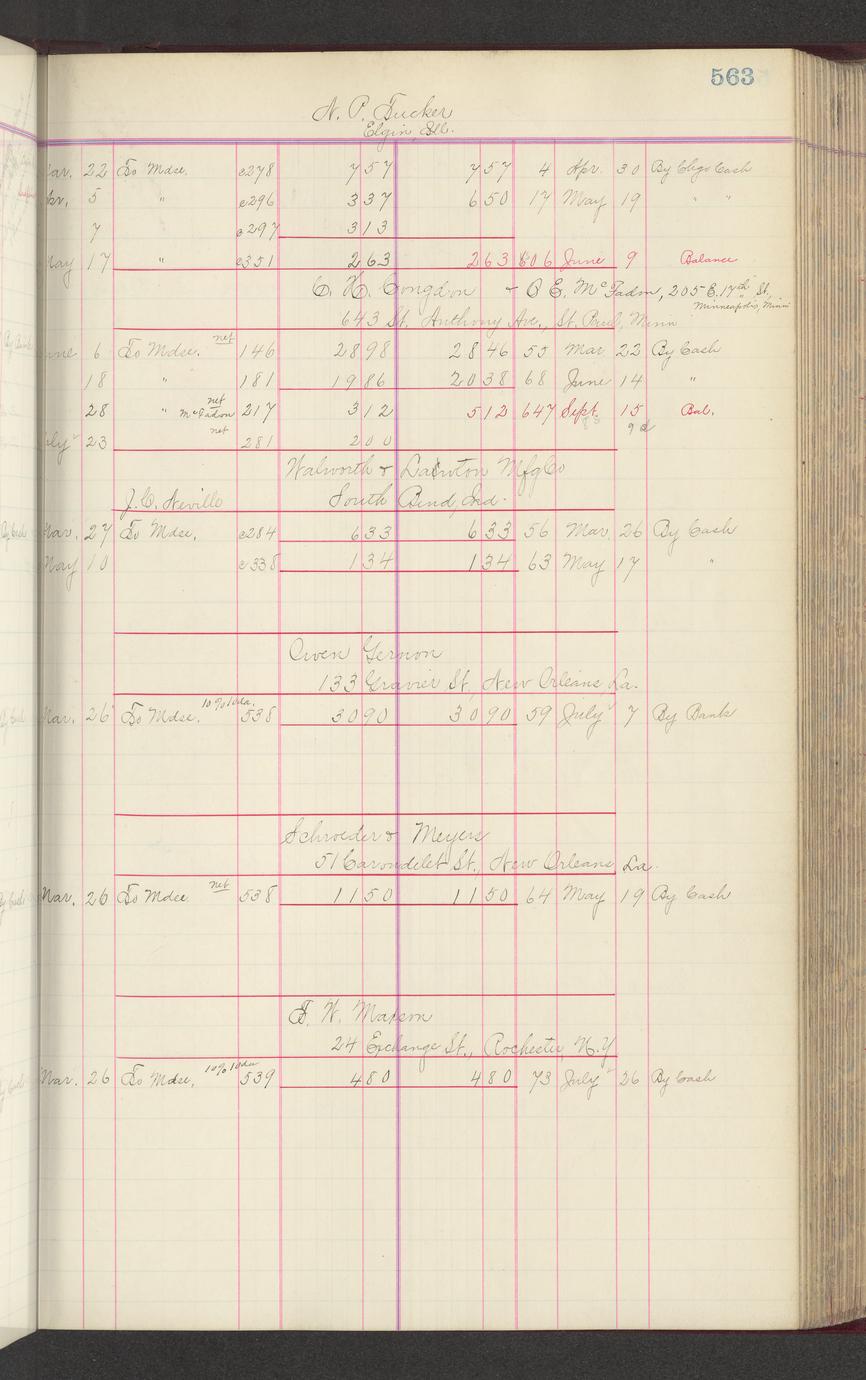 563
N. P. Tucker
Elgin, Ill.
Mar. 22 To Mdse. c278 757 757 4 Apr. 30 By Chgo Cash
Apr. 5 " c296 337 650 17 May 19 " "
7 c297 313
May 17 " c351 263 263 606 June 9 Balance
C. H. Congdon & C. E. McFadon, 205 E. 17th St,
Minneapolis, Minn
643 St. Anthony Ave., St. Paul, Minn
June 6 To Mdse. net 146 2898 2846 55 Mar 22 By Cash
18 " 181 1986 2038 68 June 14 "
28 " net McFadon 217 312 512 647 Sept. 15 Bal.
July 23 net 281 200
Walworth & Mfg Co
J. C. Neville South Bend, Ind.
Mar. 27 To Mdse. c284 633 633 56 Mar. 26 By Cash
May 10 c338 134 134 63 May 17 "
Owen Gernon
133 Gravier St, New Orleans, La.
Mar. 26 To Mdse. 10% 10da. 538 3090 3090 59 July 7 By Bank
Schroeder & Meyers
51 Carondelet St., New Orleans, La.
Mar. 26 To Mdse net 538 1150 1150 64 May 19 By Cash
F. W. Matson
24 Exchange St., Rochester, N.Y
Mar. 26 To Mdse, 10% 10da 539 480 480 73 July 26 By Cash